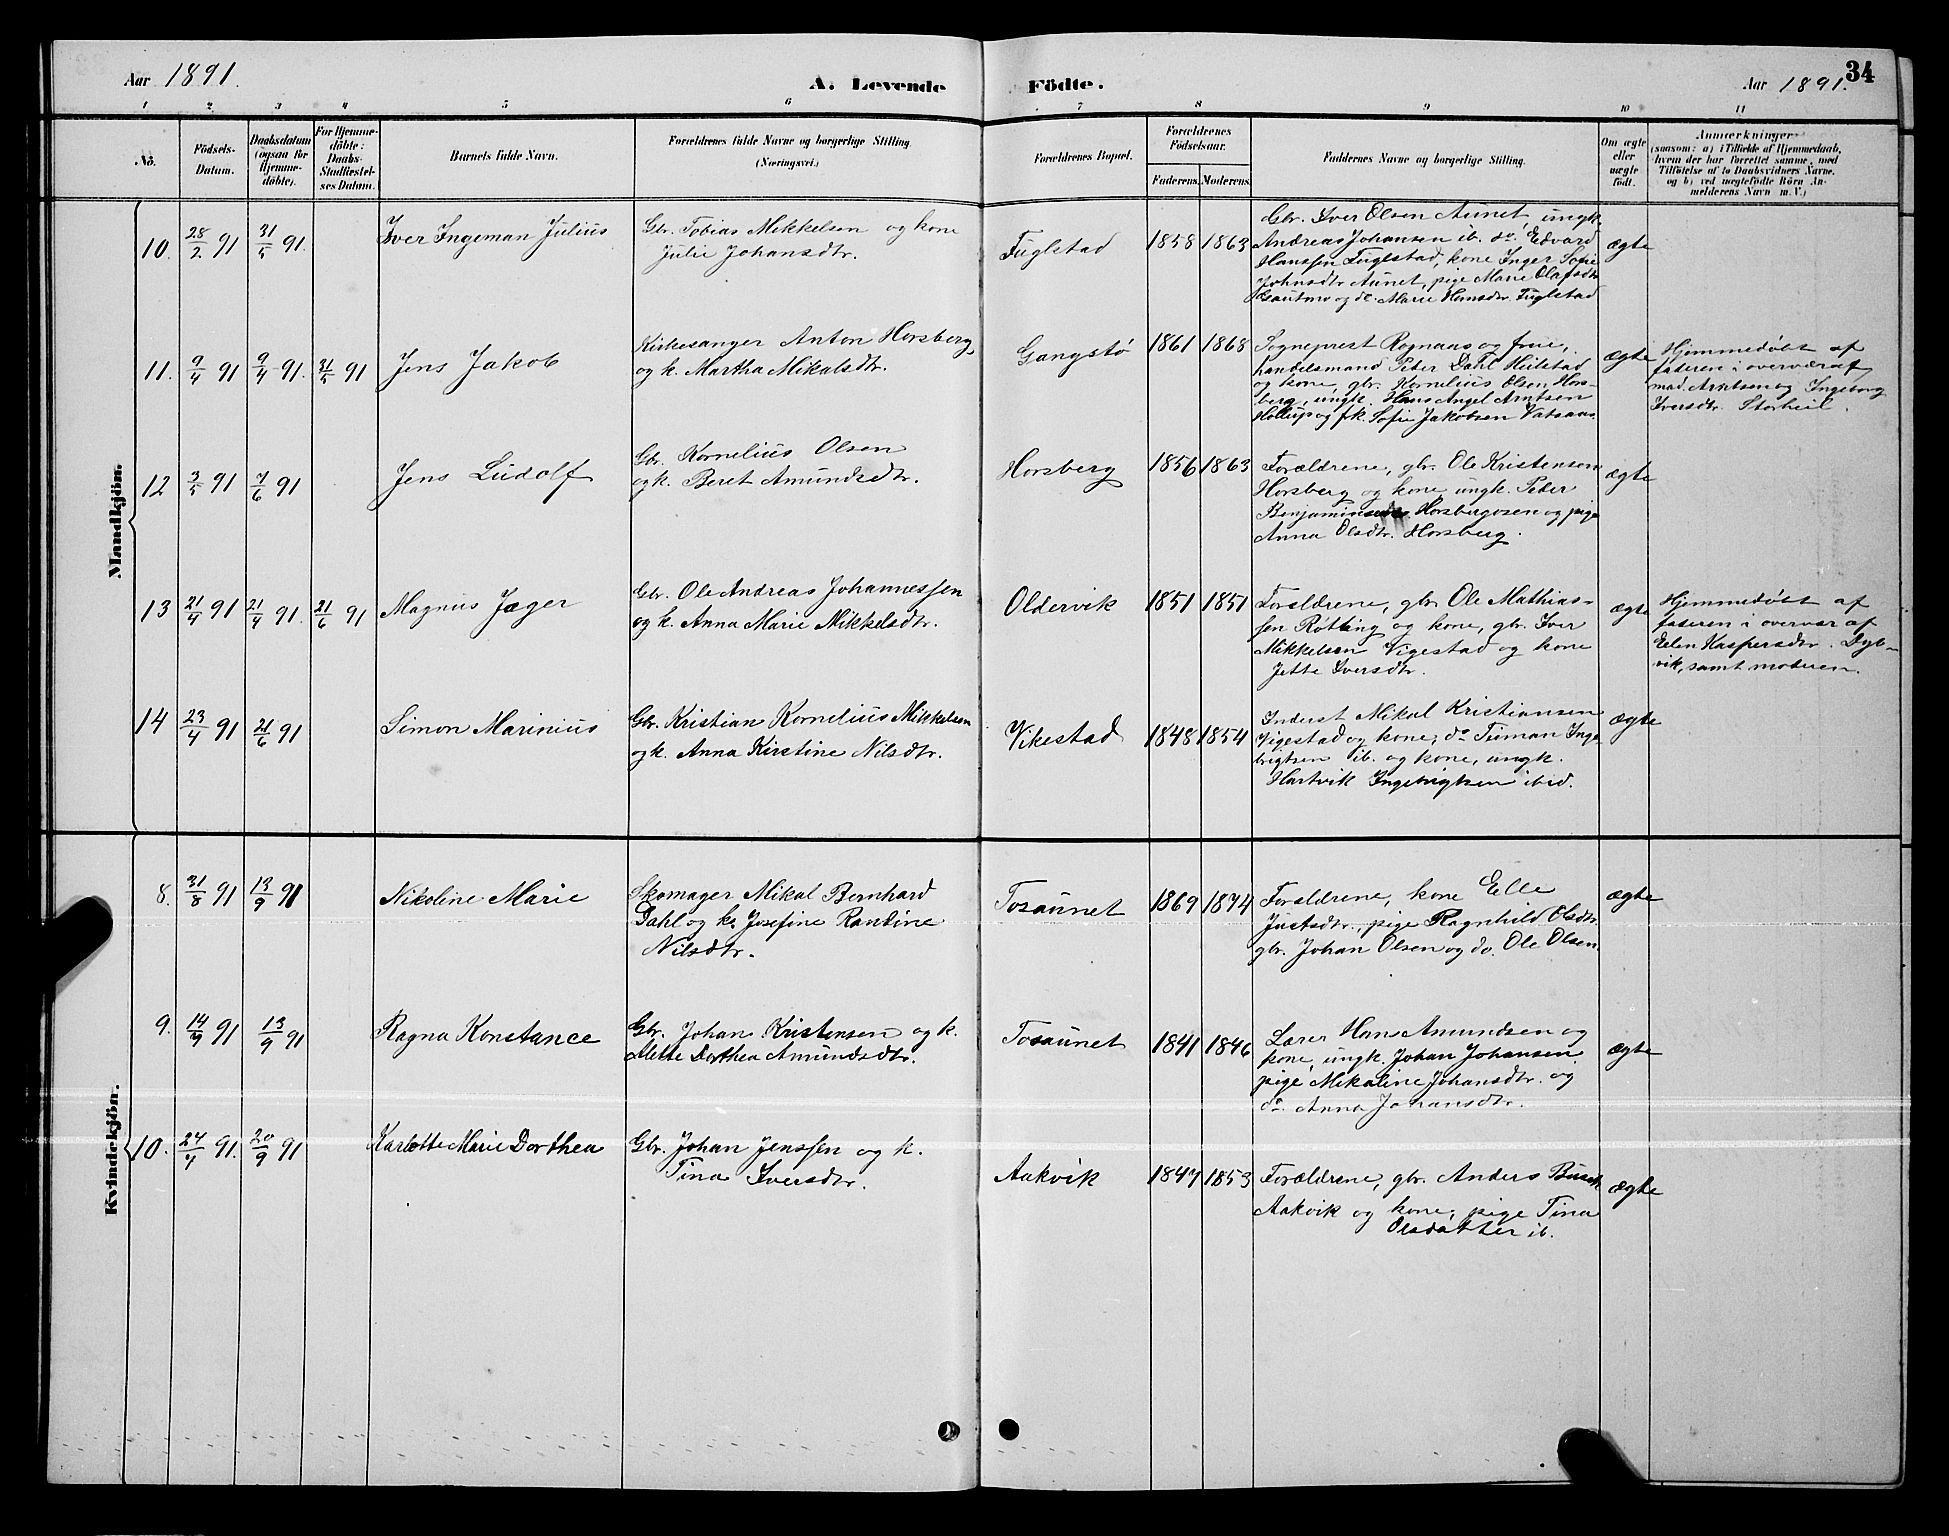 Aar 1891.
A. Levende Födte.
Aar 1891.
34
1 2 3 4 5 6 7 8 9 10 11
No.
Födsels-Datum.
Daabsdatum (ogsaa for Hjemme-döbte).
For Hjemme-döbte: Daabs-Stadfæstel-ses Datum.
Barnets fulde Navn.
Forældrenes fulde Navne og borgerlige Stilling. (Næringsvei.)
Forældrenes Bopæl.
Forældrenes Födselsaar.
Faderens. Moderens.
Faddernes Navne og borgerlige Stilling.
Om ægte eller uægte födt.
Anmærkninger
(saasom: a) i Tilfælde af Hjemmedaab,
hvem der har forrettet samme, med
Tilföielse af to Daabsvidners Navne,
og b) ved uægtefödte Börn An-
melderens Navn m. V.)
Mandkjön.
10. 28/2 91 31/5 91. Iver Ingeman Julius
Gbr. Tobias Mikkelsen og kone
Julie Johansdtr.
Fuglstad 1858 1863
Gbr. Iver Olsen Aunet, ungk.
Andreas Johansen ib. do. Edvard
Hanssen Fuglstad, kone Inger Sofie
Johnsdtr Aunet, pige Marie Olafsdtr
Gautmo og do. Marie Hansdtr. Fuglstad
ægte
11. 9/4 91 9/4 91. 31/5 91 Jens Jakob
Kirkesanger Anton Horsberg
og k. Martha Mikalsdtr.
Gangstø 1861 1868
Sogneprest Rognaas og frue,
handelsmand Peter Dahl Heilstad
og kone, gbr. Kornelius Olsen Hors-
berg, ungk. Hans Angel Arntsen
Hollup og frk. Sofie Jakobsen Vatsaas.
ægte
Hjemmedøbt af
faderen i overvær af
mad. Arntsen og Ingeborg
Iversdtr. Storheil.
12 3/5 91 7/6 91 Jens Ludolf
Gbr. Kornelius Olsen
og k. Beret Amundsdtr.
Horsberg 1856 1863
Forældrene, gbr. Ole Kristensen
Horsberg og kone ungk. Peter
Horsbergosen og pige
Anna Olsdtr. Horsberg.
ægte
13 21/4 91 21/4 91. 21/6 91 Magnus Jæger
Gbr. Ole Andreas Johannessen
og k. Anna Marie Mikkelsdtr.
Oldervik 1851 1851
Forældrene, gbr. Ole Mathias-
sen Røtting og kone, gbr. Iver
Mikkelsen Vigestad og kone
Jette Iversdtr.
ægte
Hjemmedøbt af
faderen i overvær af
Elen Kaspersdtr. Dyb-
vik, samt moderen.
14 23/4 91 21/6 91 Simon Marinius
Gbr. Kristian Kornelius Mikkelsen
og k. Anna Kirstine Nilsdtr.
Vikestad 1848 1854
Inderst Mikal Kristiansen
Vigestad og kone, do Timan Inge-
brigtsen ib. og kone, ungk.
Hartvik Ingebrigtsen ibid.
ægte
Kvindekjön.
8. 31/8 91 13/9 91 Nikoline Marie
Skomager Mikal Bernhard
Dahl og k. Josefine Randine
Nilsdtr.
Tosaunet 1869 1874
Forældrene, kone Elle
Justsdtr., pige Ragnhild Olsdtr.
gbr. Johan Olsen og do. Ole Olsen.
ægte
9. 91 13/9 91 Ragna Konstance
Gbr. Johan Kristensen og k.
Mette Dorthea Amundsdtr.
Tosaunet 1841 1846
Lærer Hans Amundsen og
kone, ungk. Johan Johansen
pige Mikaline Johansdtr. og
do. Anna Johansdtr.
ægte
10. 91. 20/9 91 Karlotte Marie Dorthea
Gbr. Johan Jenssen og k.
Tina Iversdtr.
Aakvik 1847 1853
Forældrene, gbr. Anders Busch
Aakvik og kone, pige Tina
Olsdatter ib.
ægte